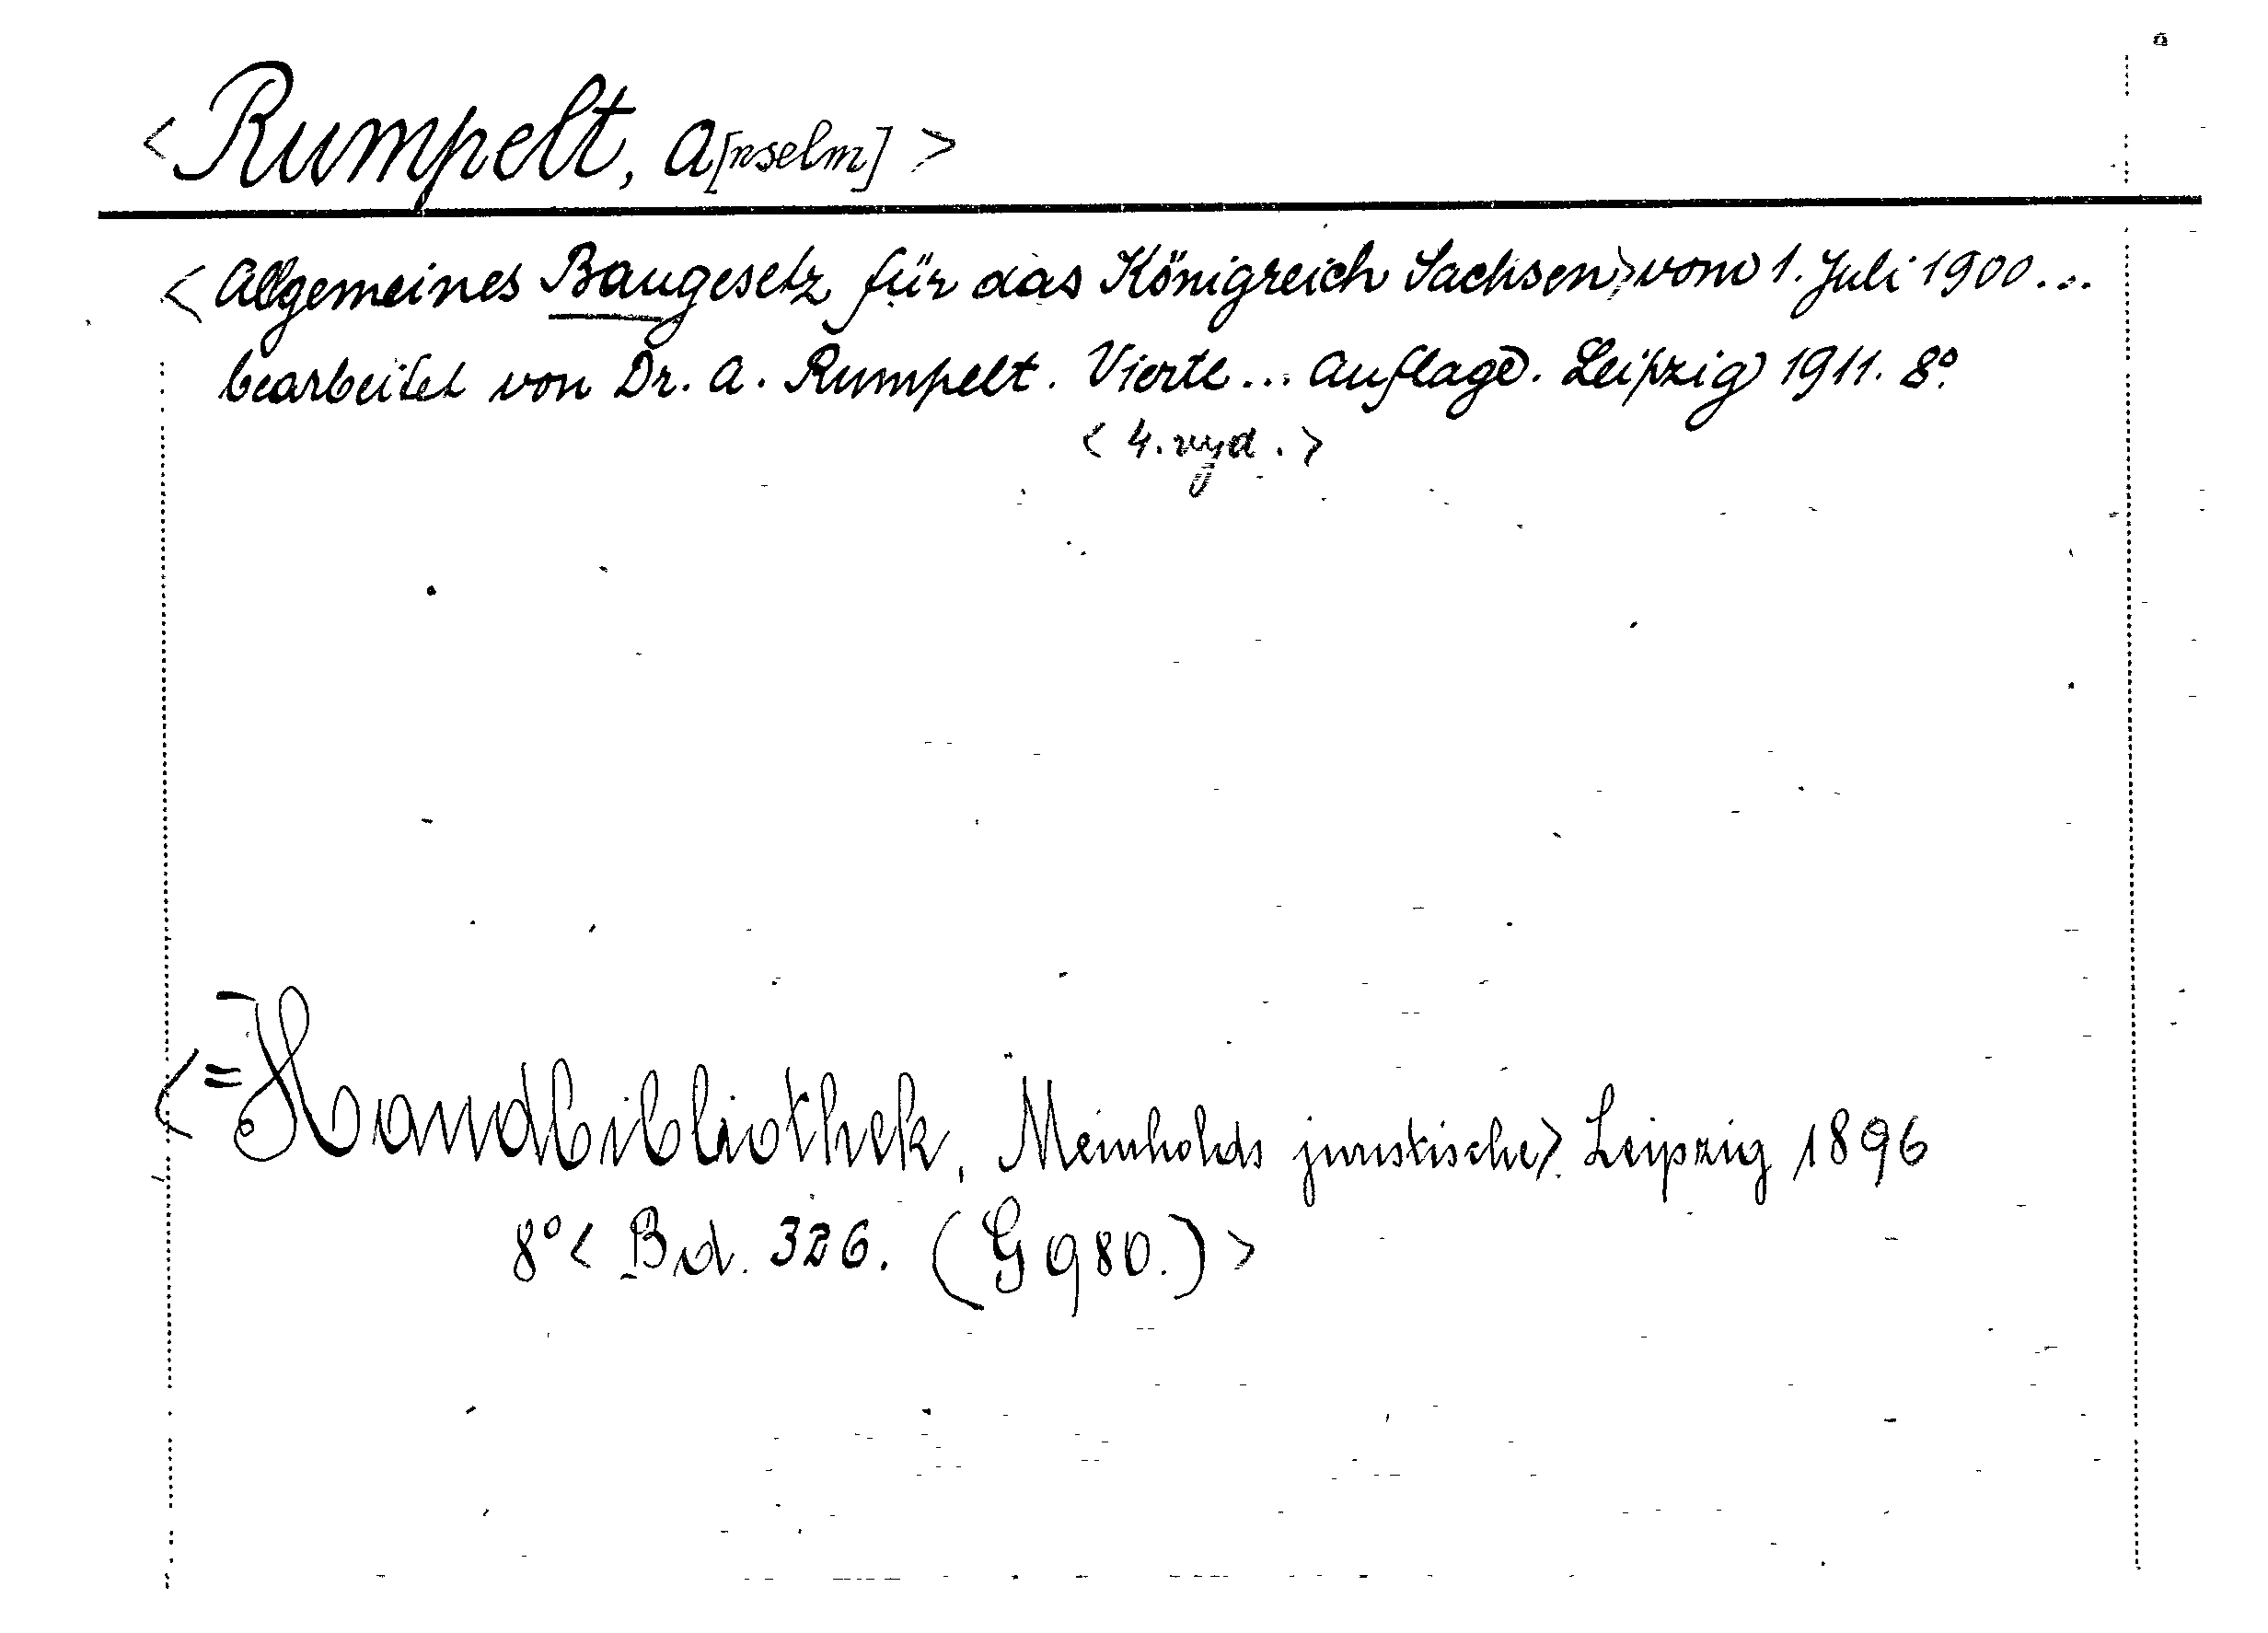 <Rumpelt, A[nselm]>
<Allgemeines Baugesetz für das Königreich Sachsen> vom 1. Juli 1900...
bearbeitet von Dr. A. Rumpelt. Vierte... Auflage. Leipzig 1911. 8°.
<4. vyd.>
<=Handbibliothek, Meinholds juristische>. Leipzig 1896
8° < Bd. 326. (G 980.)>